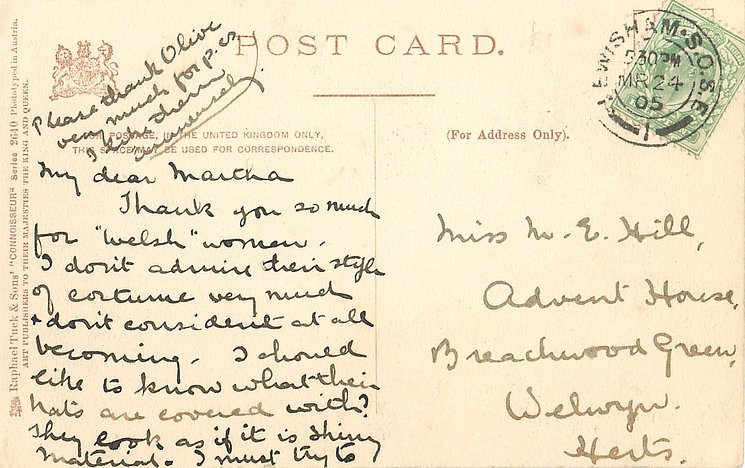 POST CARD.
Please thank Olive
very much for p. cs
I like them
immensely
FOR POSTAGE, IN THE UNITED KINGDOM ONLY,
THIS SPACE MAY BE USED FOR CORRESPONDENCE.
(For Address Only).
LEWISHAM·S.O.S.E
5 30 PM
MR 24
05
My dear Martha
Thank you so much
for "Welsh" women.
I don't admire their style
of costume very much
& don't consider it at all
becoming. I should
like to know what their
hats are covered with?
They look as if it is shiny
material. I must try to
Miss M. E. Hill,
Advent House,
Breachwood Green,
Welwyn.
Herts.
Raphael Tuck & Sons' "CONNOISSEUR" Series 2640 Phototyped in Austria.
ART PUBLISHERS TO THEIR MAJESTIES THE KING AND QUEEN.